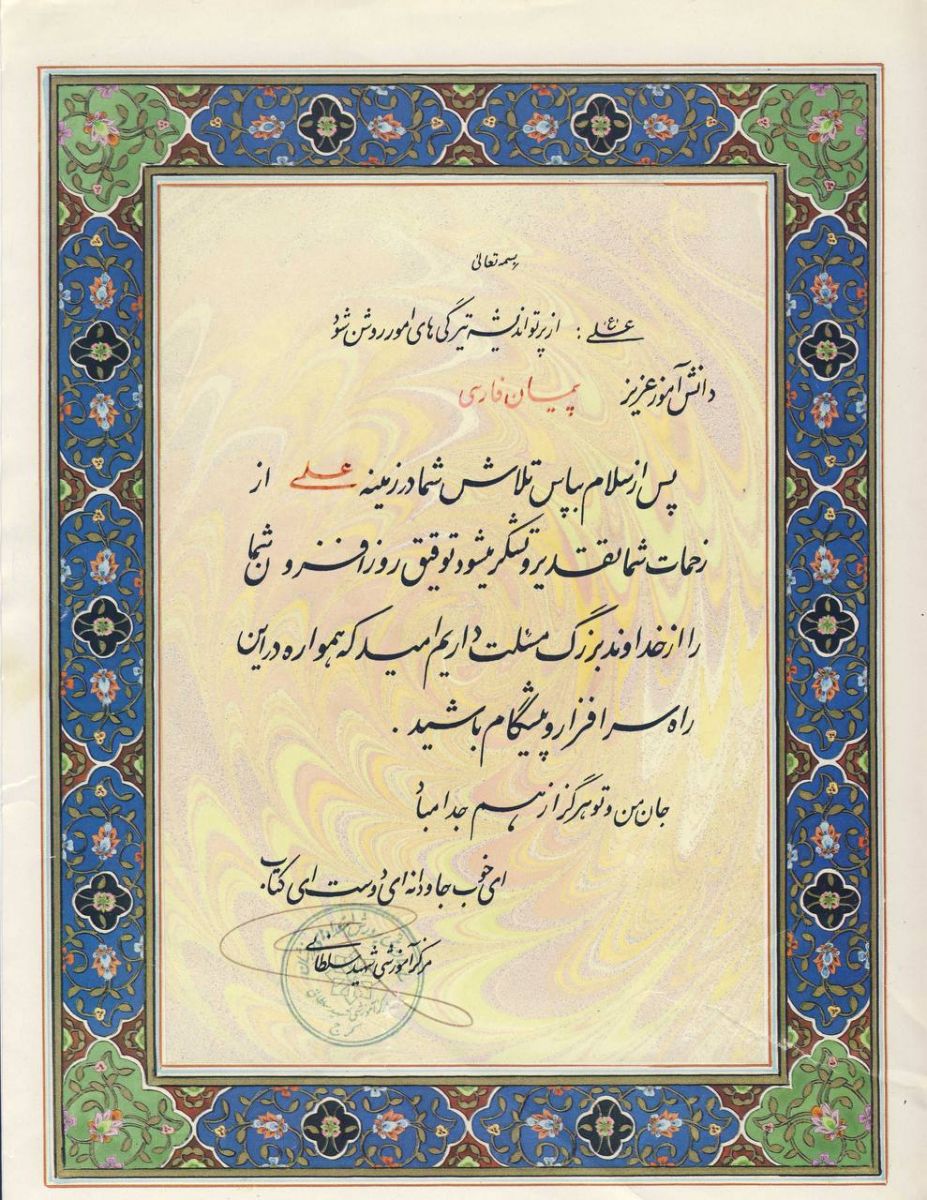 بسمه تعالی
علی (ع) : از پرتو اندیشه تیرگی های امور روشن شود
دانش آموز عزیز پیمان فارسی
پس از سلام بپاس تلاش شما در زمینه علمی از
زحمات شما تقدیر و تشکر میشود توفیق روز افزون شما
را از خداوند بزرگ مسئلت داریم امید که همواره در این
راه سرافراز و پیشگام باشید .
جان من و تو هرگز از هم جدا مباد
ای خوب جاودانه ای دوست ای کتاب
مرکز آموزشی شهید سلطانی
کرج